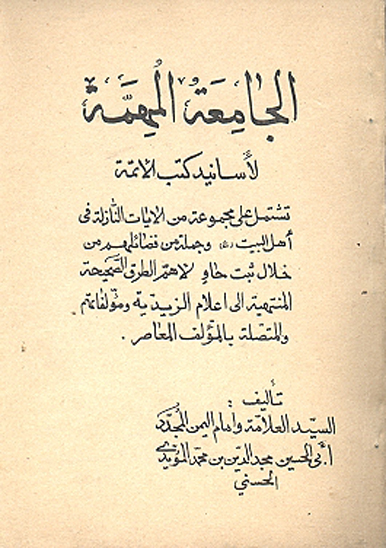 الجامعة المهمة
لأسانيد كتب الأئمة
تشتمل على مجموعة من الآيات النازلة في
أهل البيت (ع) وجملة من فضائلهم من
خلال ثبت حاو لأهم الطرق الصحيحة
المنتهية الى اعلام الزيدية ومؤلفاتهم
والمتصلة بالمؤلف المعاصر.
تأليف:
السيد العلامة وامام اليمن المجدد
أبي الحسين مجد الدين بن محمد المؤيدي
الحسني